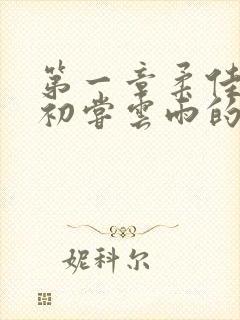 第一章柔佳
初尝云雨的
妮科尔